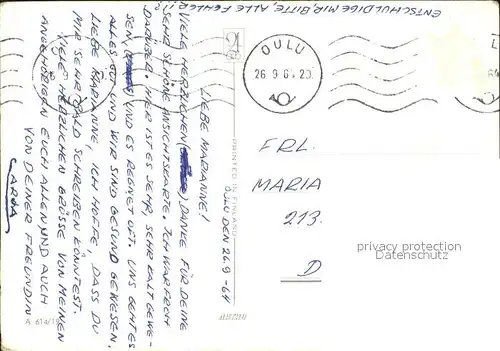 OULU DEN 26.9 -64
LIEBE MARIANNE!
VIELE HERZLICHEN DANKE FÜR DEINE
SEHR SCHÖNE ANSICHTSKARTE. ICH WAR FROH
DARÜBER. HIER IST ES SEHR, SEHR KALT GEWE-
SEN UND ES REGNET OFT. UNS GEHT ES
ALLES GUT UND WIR SIND GESUND GEWESEN.
LIEBE MARIANNE, ICH HOFFE, DASS DU
MIR SEHR BALD SCHREIBEN KÖNNTEST.
VIELE HERZLICHEN GRÜSSE VON MEINEN
ANGEHÖRIGEN EUCH ALLEN UND AUCH
VON DEINER FREUNDIN
ARJA
ENTSCHULDIGE MIR, BITTE, ALLE FEHLER!!?
A 614/15
PRINTED IN FINLAND
OULU
26 9 6 20
FRL.
MARIA
213.
D
privacy protection
Ansichtskarten-Lexikon